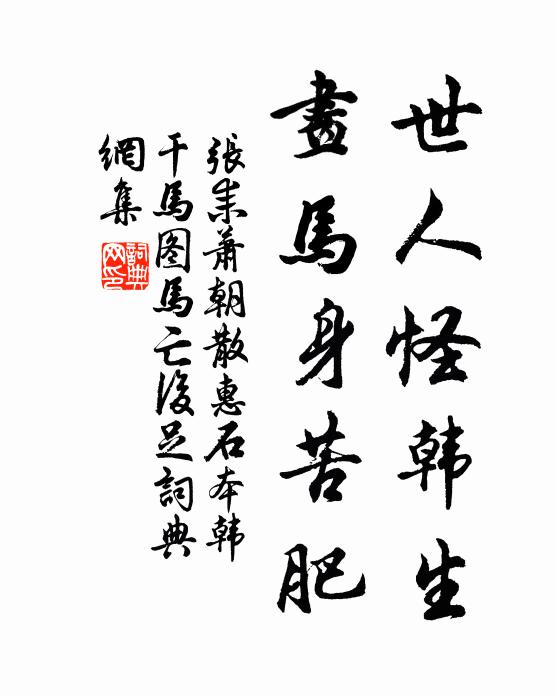 世人怪韩生
畫馬身苦肥
張耒萧朝散惠石本韩
干馬图馬亡後足詞典
網集
詞典
网印